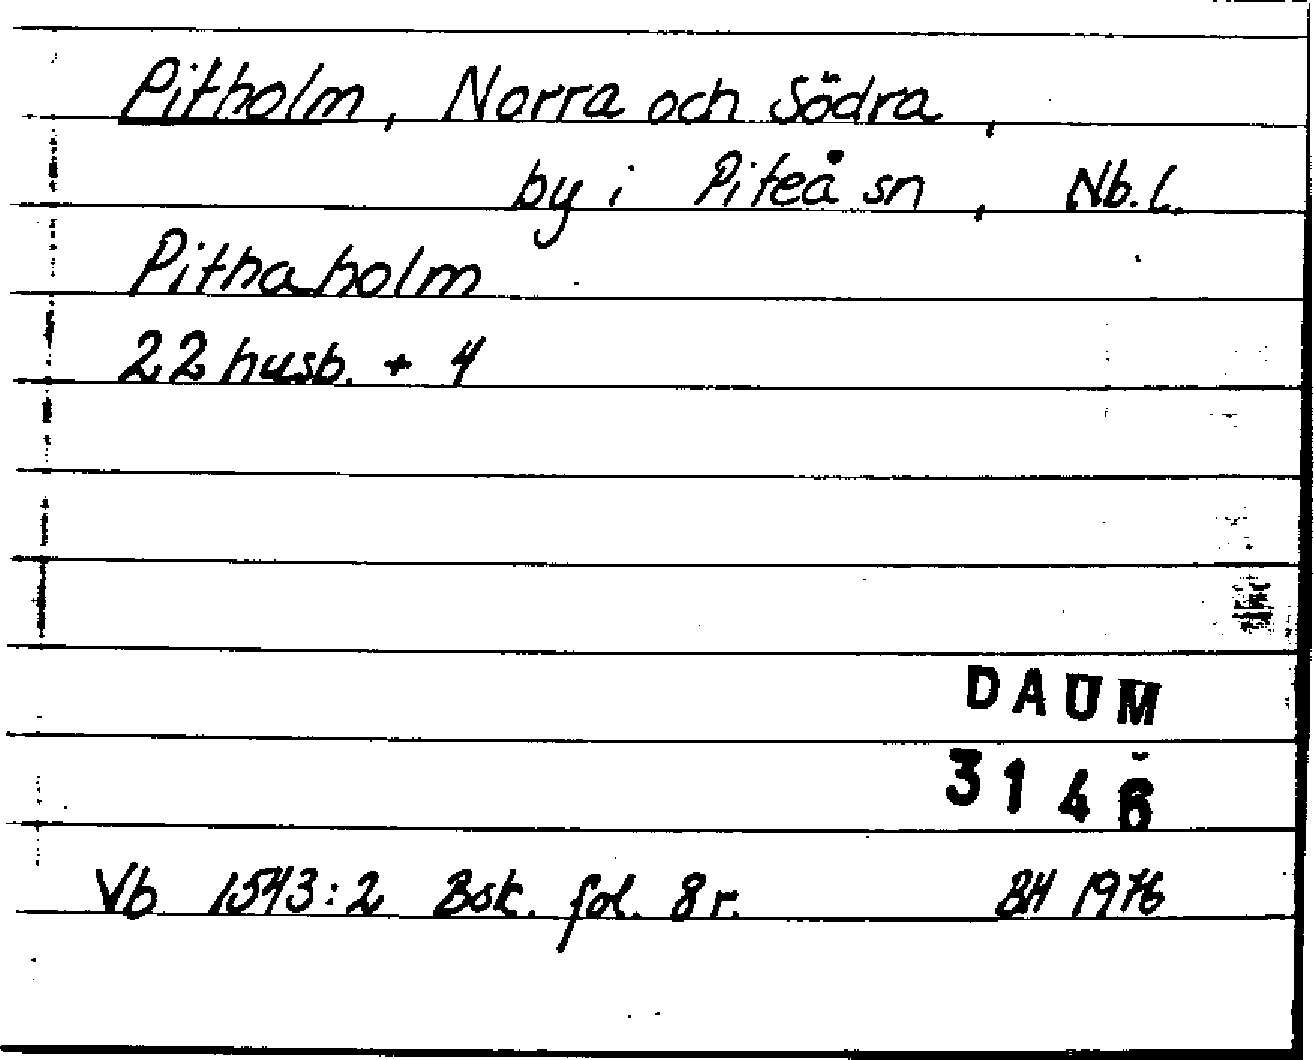 Pitholm, Norra och Södra,
by i Piteå sn, Nb. l.
Pithaholm
22 husb. + 4
DAUM
3146
Vb 1543:2 Bsk. fol. 8 r. BH 1976